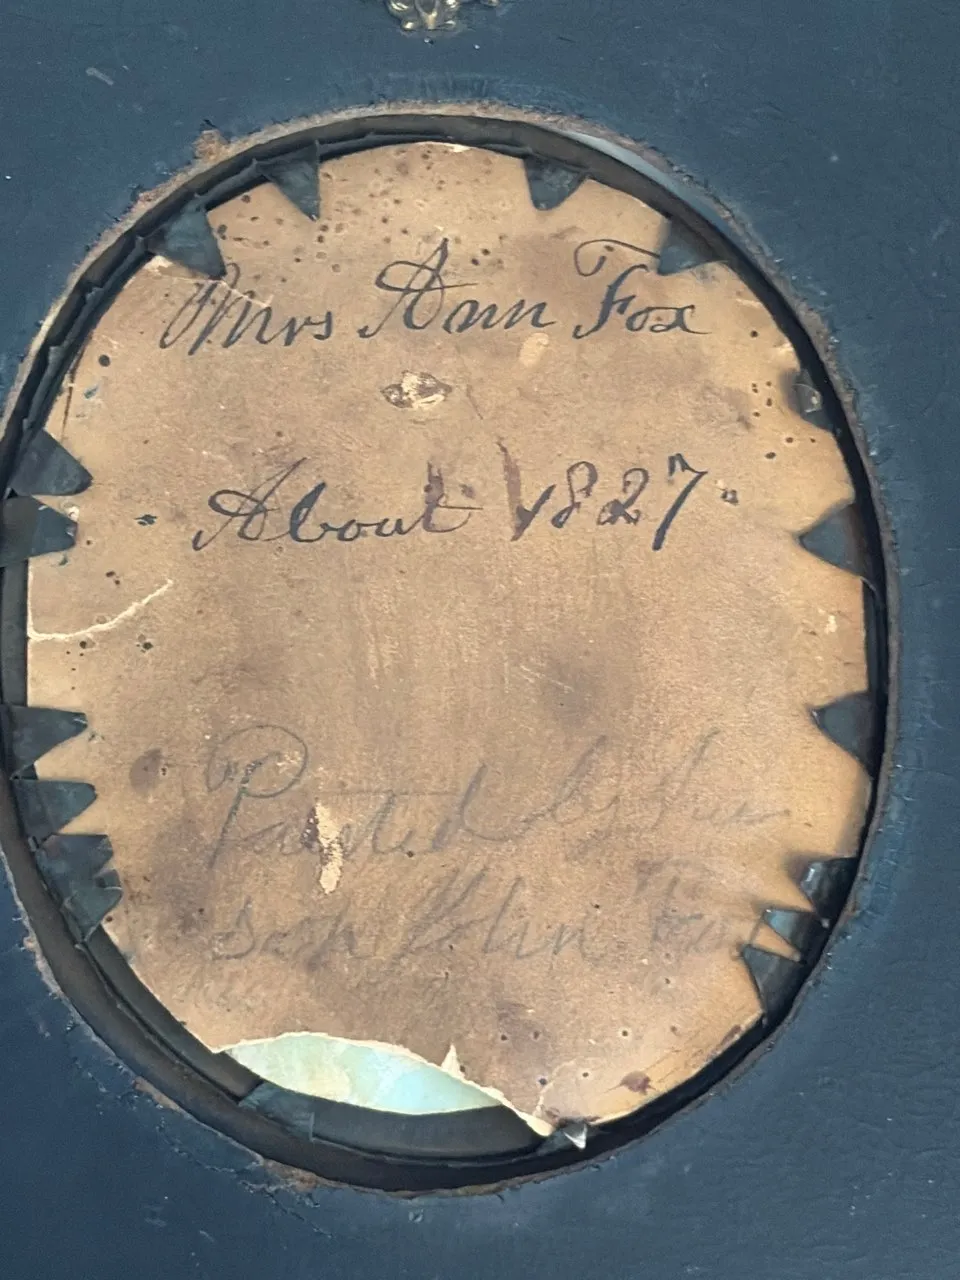 Mrs Ann Fox
About 1827
Painted by her
son John Fox